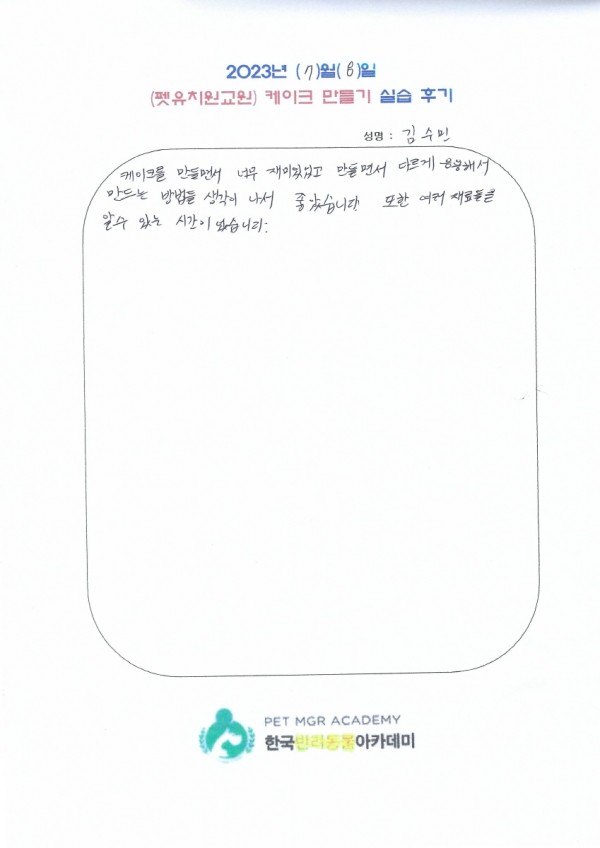 2023년 (7)월(8)일
(펫유치원교원) 케이크 만들기 실습 후기
성명 : 김수민
케이크를 만들면서 너무 재미있었고 만들면서 다르게 응용해서
만드는 방법들 생각이 나서 좋았습니다 또한 여러 재료들을
알 수 있는 시간이었습니다.
PET MGR ACADEMY
한국반려동물아카데미